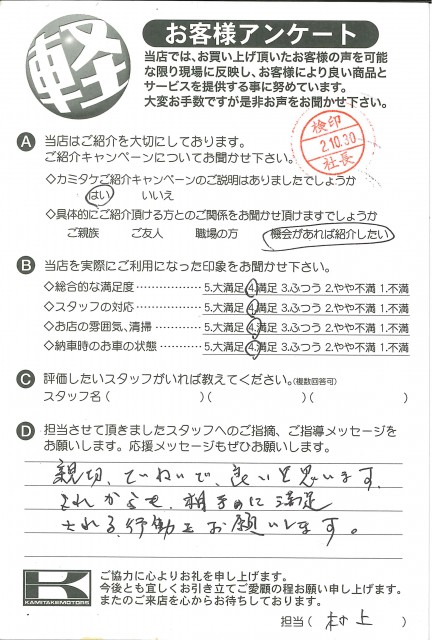 軽
お客様アンケート
当店では、お買い上げ頂いたお客様の声を可能
な限り現場に反映し、お客様により良い商品と
サービスを提供する事に努めています。
大変お手数ですが是非お声をお聞かせ下さい。
検印
2.10.30
社長
A 当店はご紹介を大切にしております。
ご紹介キャンペーンについてお聞かせ下さい。
◇カミタケご紹介キャンペーンのご説明はありましたでしょうか
はい いいえ
◇具体的にご紹介頂ける方とのご関係をお聞かせ頂けますでしょうか
ご親族 ご友人 職場の方 機会があれば紹介したい
B 当店を実際にご利用になった印象をお聞かせ下さい。
◇総合的な満足度……………5.大満足 4.満足 3.ふつう 2.やや不満 1.不満
◇スタッフの対応……………5.大満足 4.満足 3.ふつう 2.やや不満 1.不満
◇お店の雰囲気、清掃………5.大満足 4.満足 3.ふつう 2.やや不満 1.不満
◇納車時のお車の状態………5.大満足 4.満足 3.ふつう 2.やや不満 1.不満
C 評価したいスタッフがいれば教えてください。(複数回答可)
スタッフ名( )( )( )
D 担当させて頂きましたスタッフへのご指摘、ご指導メッセージを
お願いします。応援メッセージもぜひお願いします。
親切、ていねいで、良いと思います。
これからも、相手のに満足
される、行動をお願いします。
K
KAMITAKE MOTORS
ご協力に心よりお礼を申し上げます。
今後とも宜しくお引き立てご愛顧の程お願い申し上げます。
またのご来店を心からお待ちしております。
担当( 村上 )